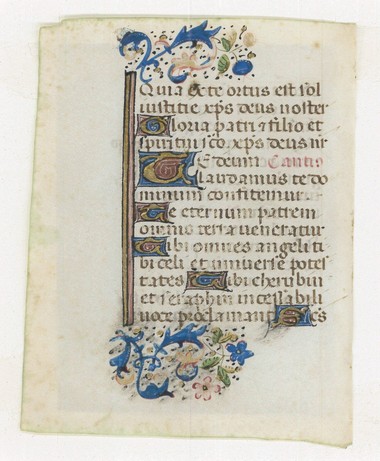 Quia ex te ortus est sol
iustitie xps deus noster
Gloria patri et filio et
spiritui sco. xps deus nr
Te deum Cantic
laudamus te do
minum confitemur
Te eternum patrem
omnis terra veneratur
Tibi omnes angeli ti
bi celi et universe potes
tates Tibi cherubin
et seraphin incessabili
voce proclamant Scs